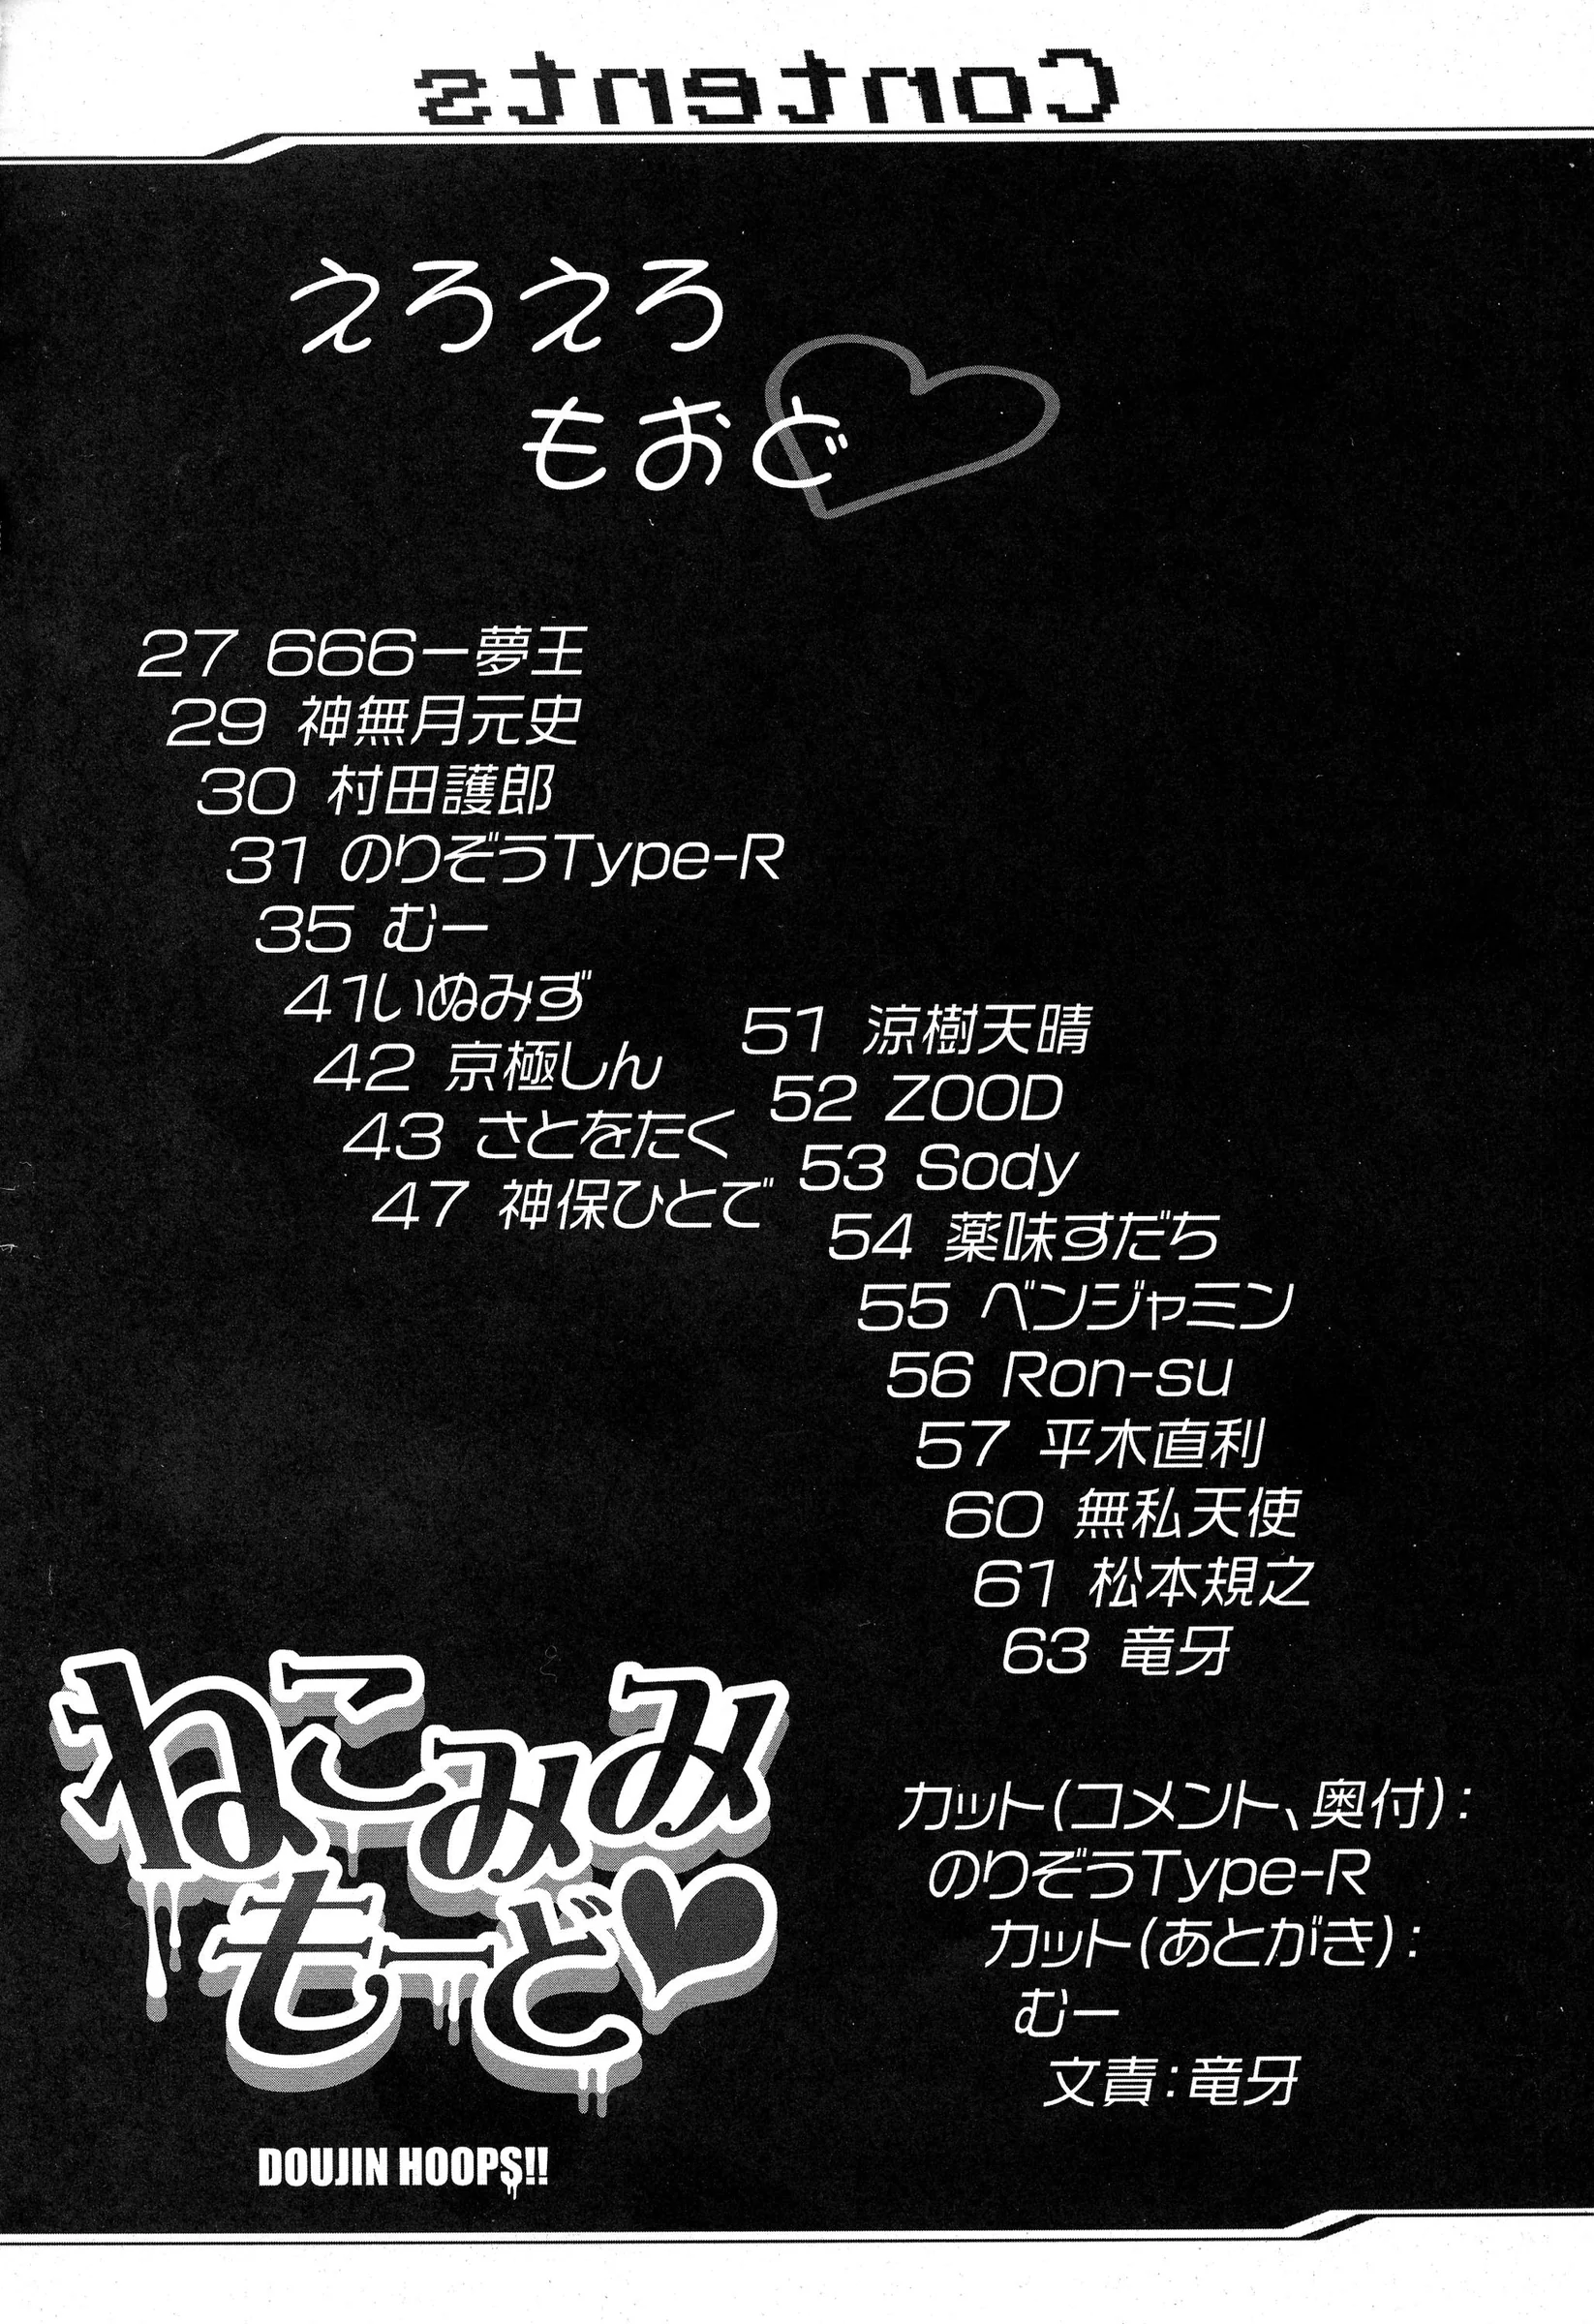 Contents
えろえろ
もおど
27 666ー夢王
29 神無月元史
30 村田護郎
31 のりぞうType-R
35 むー
41いぬみず
42 京極しん
43 さとをたく
47 神保ひとで
51 涼樹天晴
52 ZOOD
53 Sody
54 薬味すだち
55 ベンジャミン
56 Ron-su
57 平木直利
60 無私天使
61 松本規之
63 竜牙
カット(コメント、奥付):
のりぞうType-R
カット(あとがき):
むー
文責:竜牙
ねこみみ
もーど♥
DOUJIN HOOPS!!